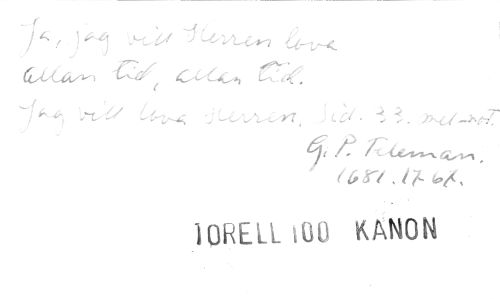 Ja, jag vill Herren lova
allan tid, allan tid.
Jag vill lova Herren, Sid. 33. mel-not.
G. P. Teleman.
1681.1767.
TORELL 100 KANON